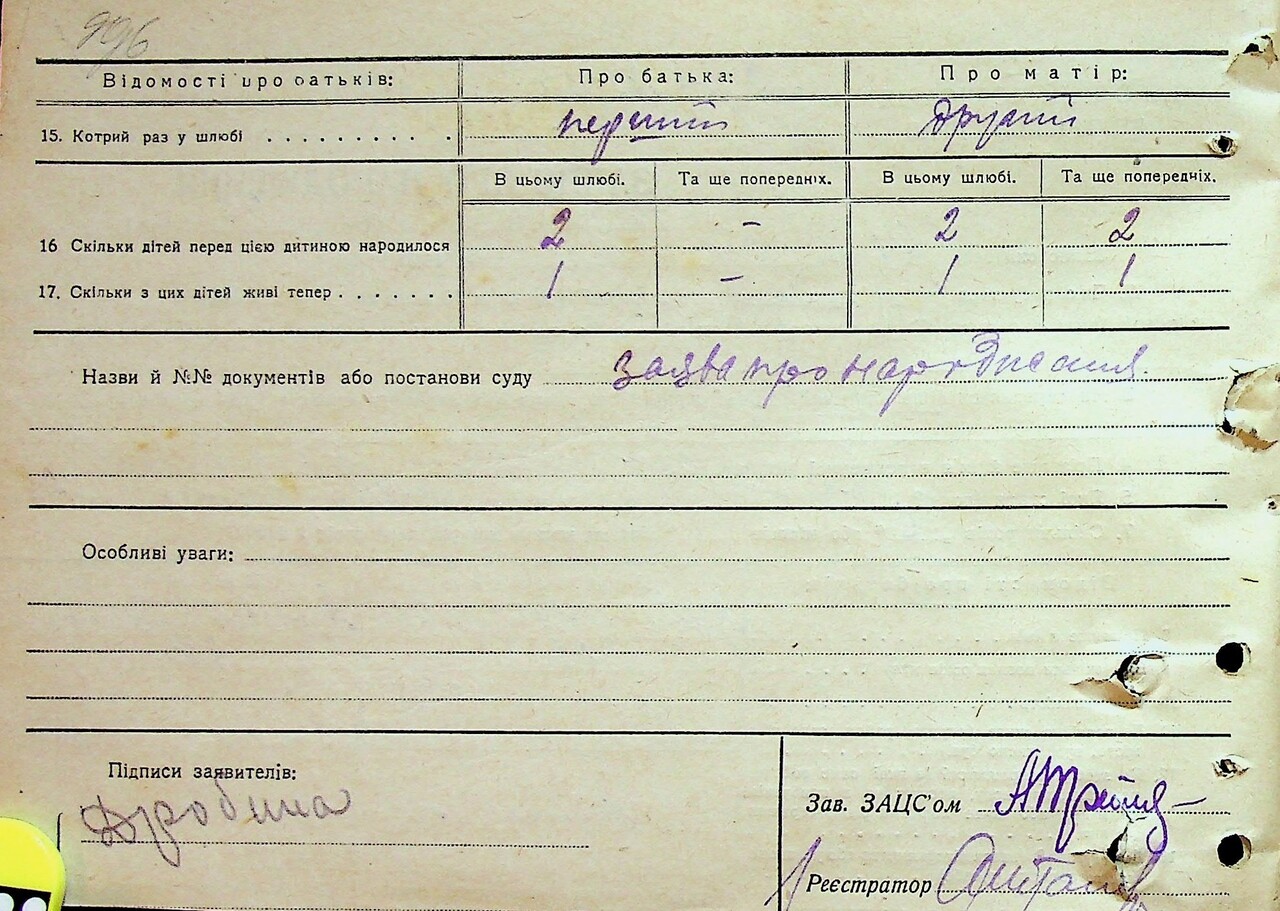 996
Відомості про батьків: Про батька: Про матір:
15. Котрий раз у шлюбі . . . . . . . . . . перший другий
В цьому шлюбі. Та ще попередніх. В цьому шлюбі. Та ще попередніх.
16 Скільки дітей перед цією дитиною народилося 2 – 2 2
17. Скільки з цих дітей живі тепер . . . . . . . 1 – 1 1
Назви й №№ документів або постанови суду заява про народження.
Особливі уваги:
Підписи заявителів:
Дробина
Зав. ЗАЦС'ом
Реєстратор